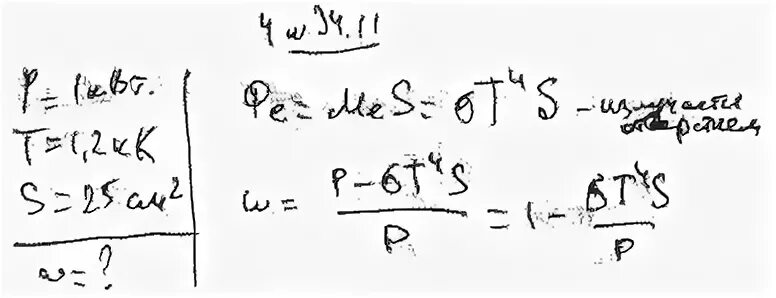 4 и 34.11
P = 1 кВт.
T = 1,2 кК
S = 25 см²
w = ?
Фe = Me S = σT⁴S – излучается отверстием
w = (P – σT⁴S) / P = 1 – σT⁴S / P